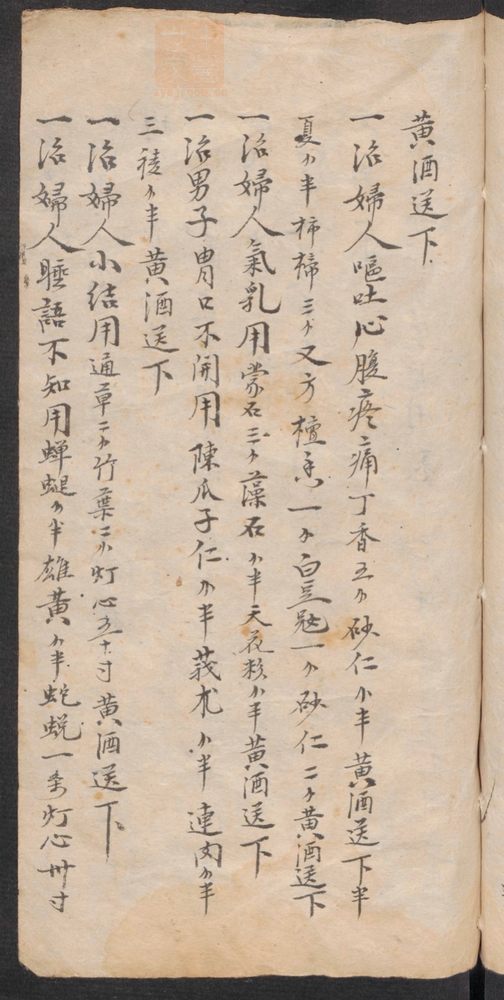 黄酒送下
一治婦人嘔吐心腹疼痛丁香五分砂仁分半黄酒送下半
夏分半柿楴三分又方檀香一分白豆蔻一分砂仁二分黄酒送下
一治婦人氣乳用蒙石三分藻石分半天花粉分半黄酒送下
一治男子胃口不開用陳瓜子仁分半莪朮分半連肉分半
三稜分半黄酒送下
一治婦人小結用通草二分竹葉二分灯心五十寸黄酒送下
一治婦人睡語不知用蝉蜕分半雄黄分半蛇蜕一条灯心卅寸